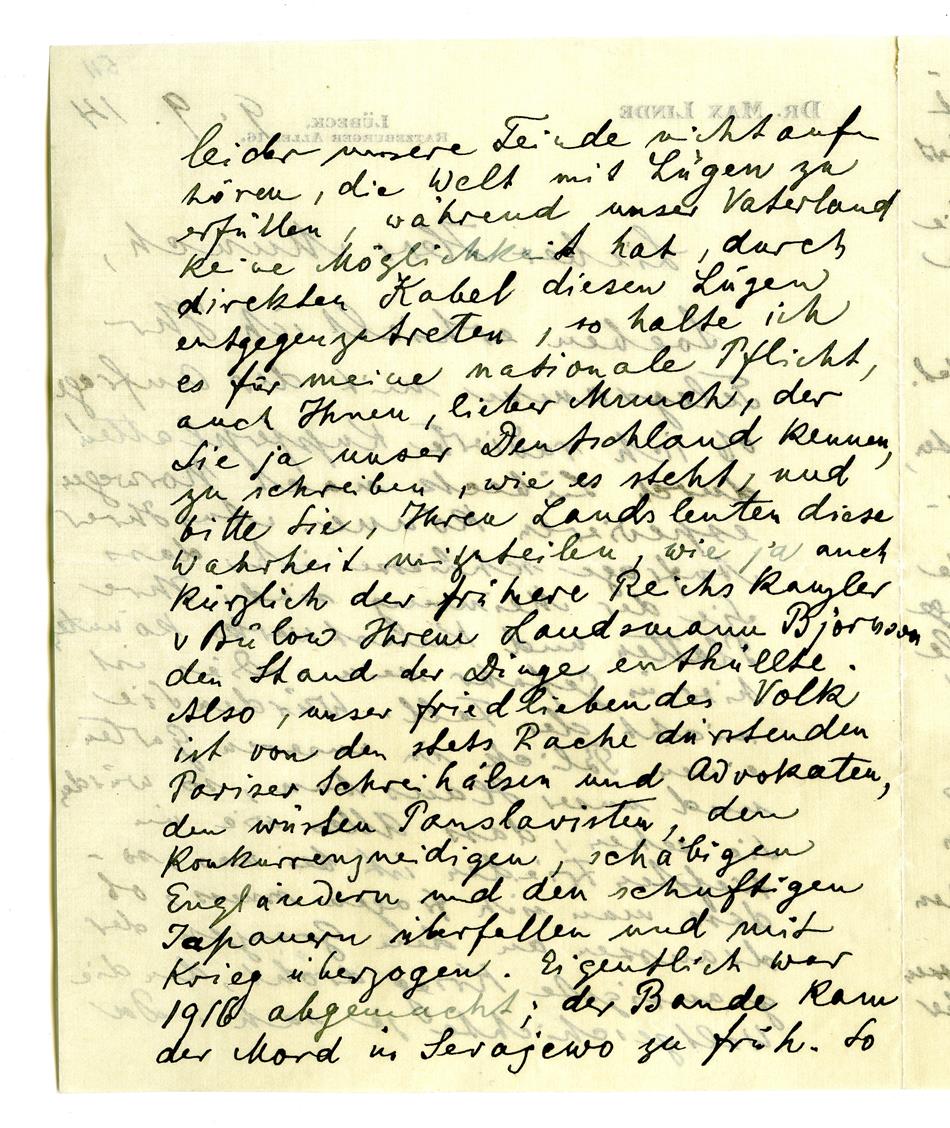 leider unsere Feinde nicht auf-
hören, die Welt mit Lügen zu
erfüllen, während unser Vaterland
keine Möglichkeit hat, durch
direkten Kabel diesen Lügen
entgegenzutreten, so halte ich
es für meine nationale Pflicht,
auch Ihnen, lieber Munch, der
Sie ja unser Deutschland kennen,
zu schreiben, wie es steht, und
bitte Sie, Ihren Landsleuten diese
Wahrheit mitzuteilen, wie ja auch
kürzlich der frühere Reichskanzler
v Bülow Ihrem Landsmann Björnson
den Stand der Dinge enthüllte.
Also, unser friedliebendes Volk
ist von den stets Rache dürstenden
Pariser Schreihälsen und Advokaten,
den wüsten Panslavisten, den
Konkurrenzneidigen, schäbigen
Engländern und den schuftigen
Japanern überfallen und mit
Krieg überzogen. Eigentlich war
1916 abgemacht; der Bande kam
der Mord in Serajewo zu früh. So
DR. MAX LINDE
LÜBECK,
RATZEBURGER ALLEE 16.